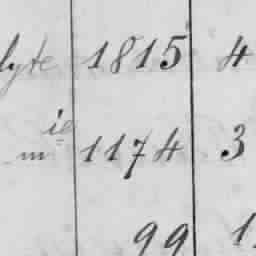 lyte 1815 4
m ie 1174 3
99 1